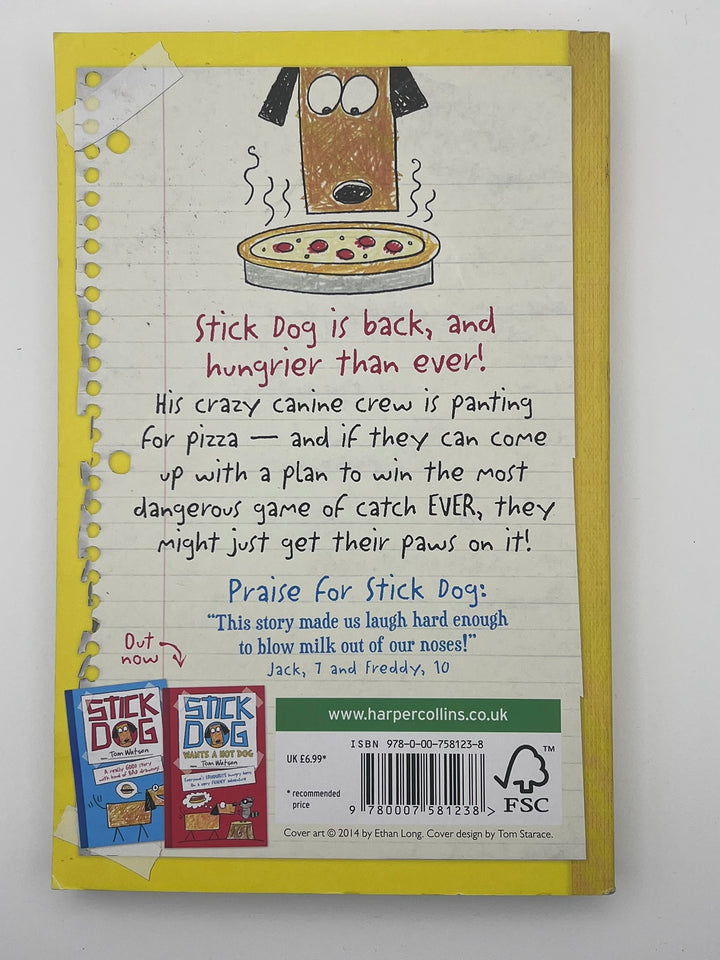 Stick Dog is back, and
hungrier than ever!
His crazy canine crew is panting
for pizza — and if they can come
up with a plan to win the most
dangerous game of catch EVER, they
might just get their paws on it!
Praise for Stick Dog:
“This story made us laugh hard enough
to blow milk out of our noses!”
Jack, 7 and Freddy, 10
Out
now
STICK
DOG
Tom Watson
A really GOOD story
with kind of BAD drawings
STICK
DOG
WANTS A HOT DOG
Tom Watson
www.harpercollins.co.uk
ISBN 978-0-00-758123-8
UK £6.99*
* recommended
price
9 780007 581238 >
FSC
TM
Cover art © 2014 by Ethan Long. Cover design by Tom Starace.